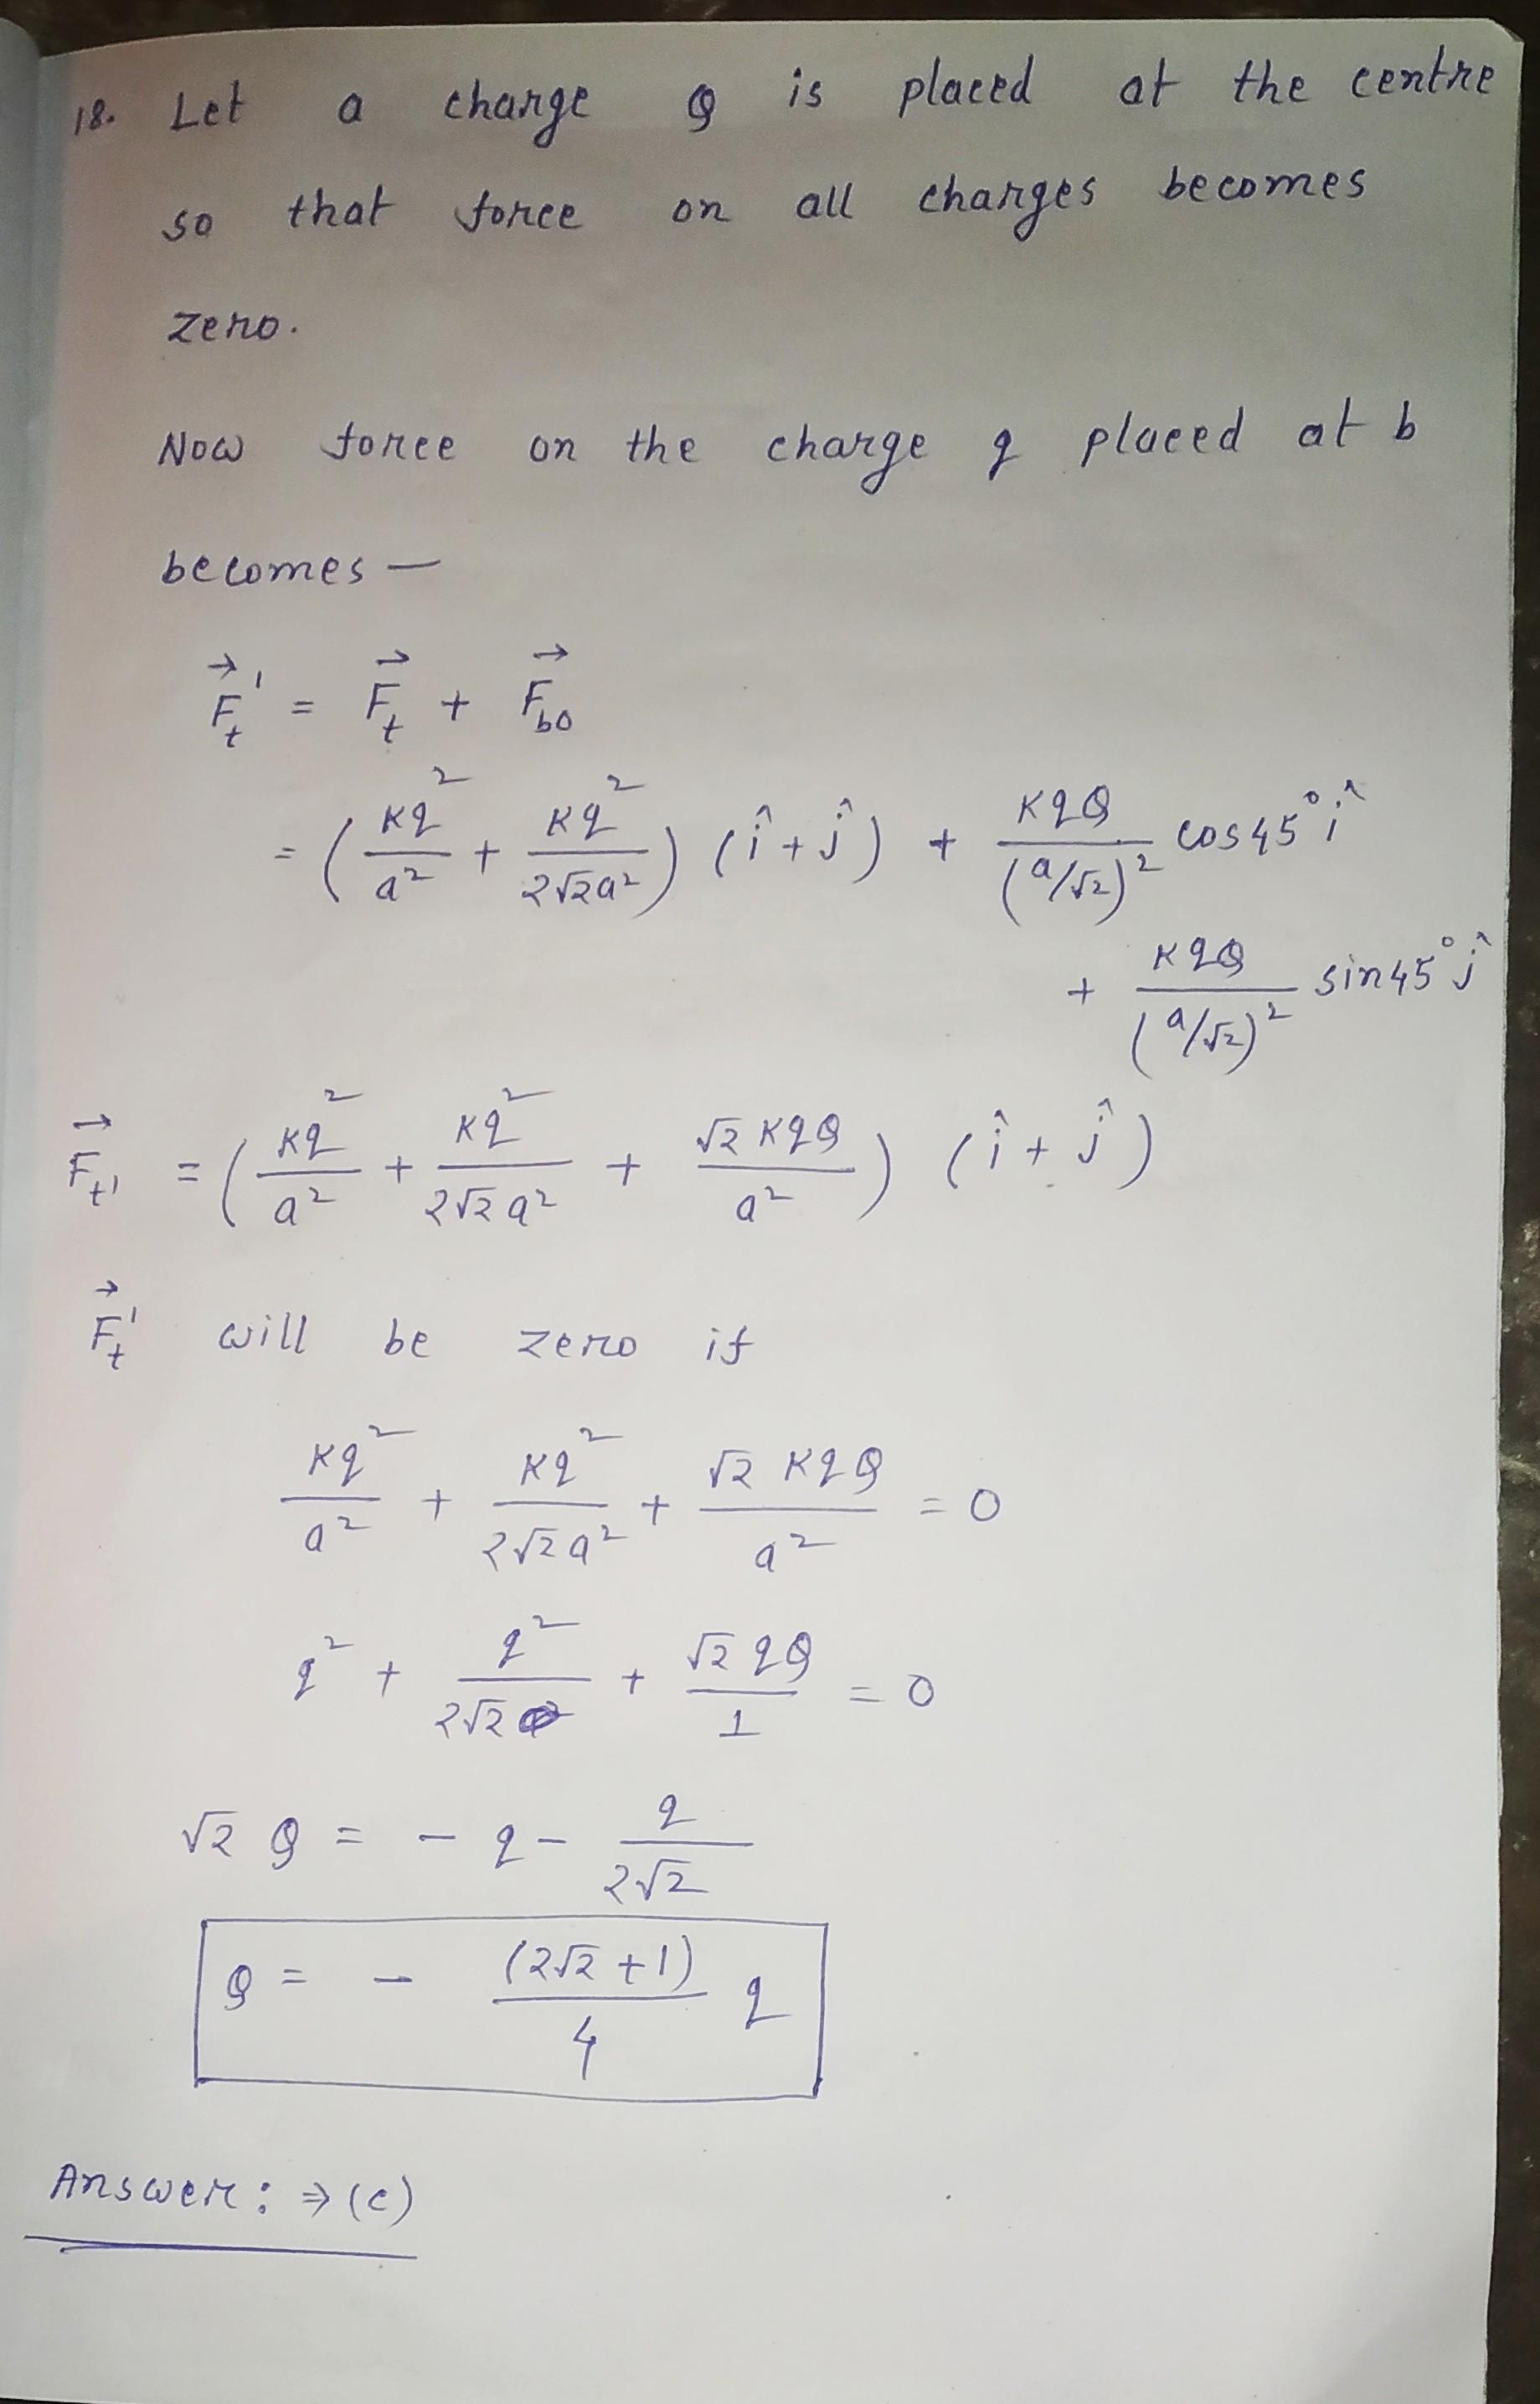 18. Let a charge Q is placed at the centre
so that force on all charges becomes
zero.
Now force on the charge q placed at b
becomes —
\vec{F}_t' = \vec{F}_t + \vec{F}_{bo}
= (Kq²/a² + Kq²/2√2a²) (î + ĵ) + KqQ/(a/√2)² cos45° î
+ KqQ/(a/√2)² sin45° ĵ
\vec{F}_{t'} = (Kq²/a² + Kq²/2√2a² + √2KqQ/a²) (î + ĵ)
\vec{F}_t' will be zero if
Kq²/a² + Kq²/2√2a² + √2KqQ/a² = 0
q² + q²/2√2 + √2qQ/1 = 0
√2 Q = - q - q/2√2
Q = - (2√2+1)/4 q
Answer: ⇒ (c)